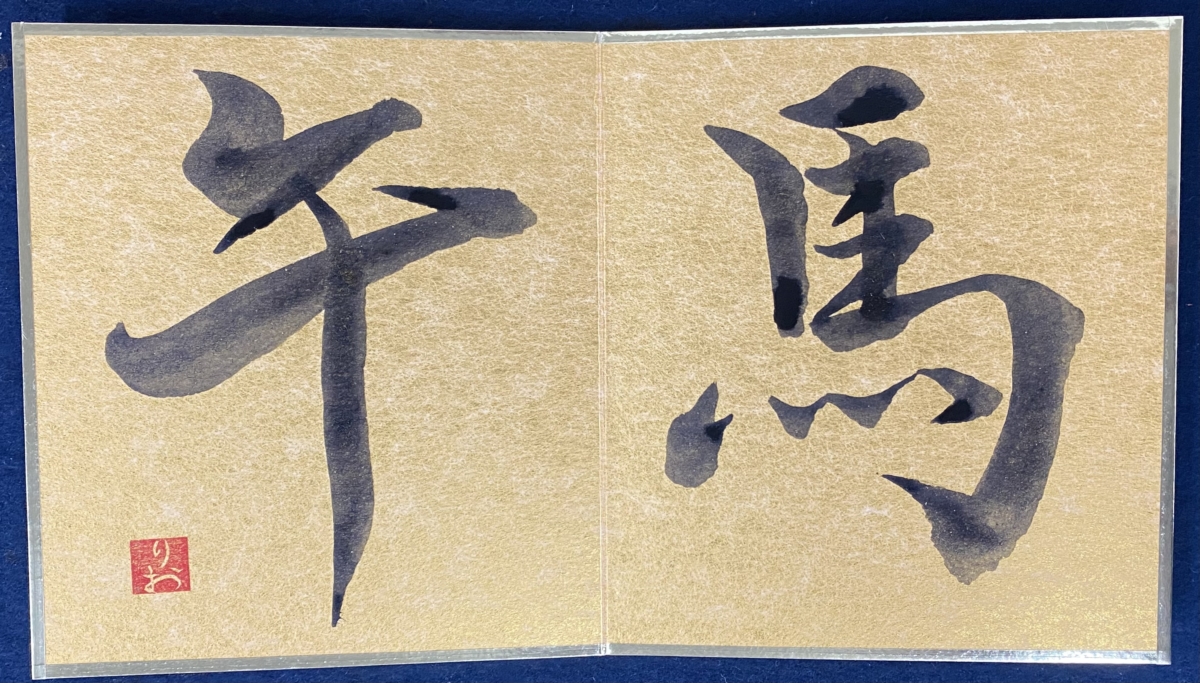 馬
午
りお